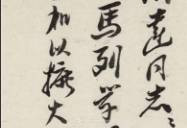 同志:
馬列学
加以擴大